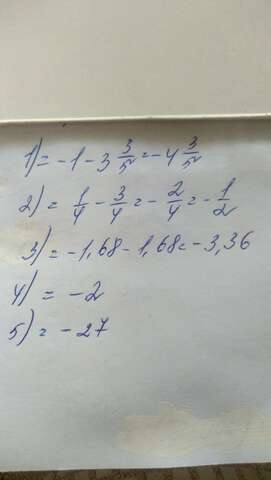 1) = -1 - 3 3/5 = -4 3/5
2) = 1/4 - 3/4 = -2/4 = -1/2
3) = -1,68 - 1,68 = -3,36
4) = -2
5) = -27